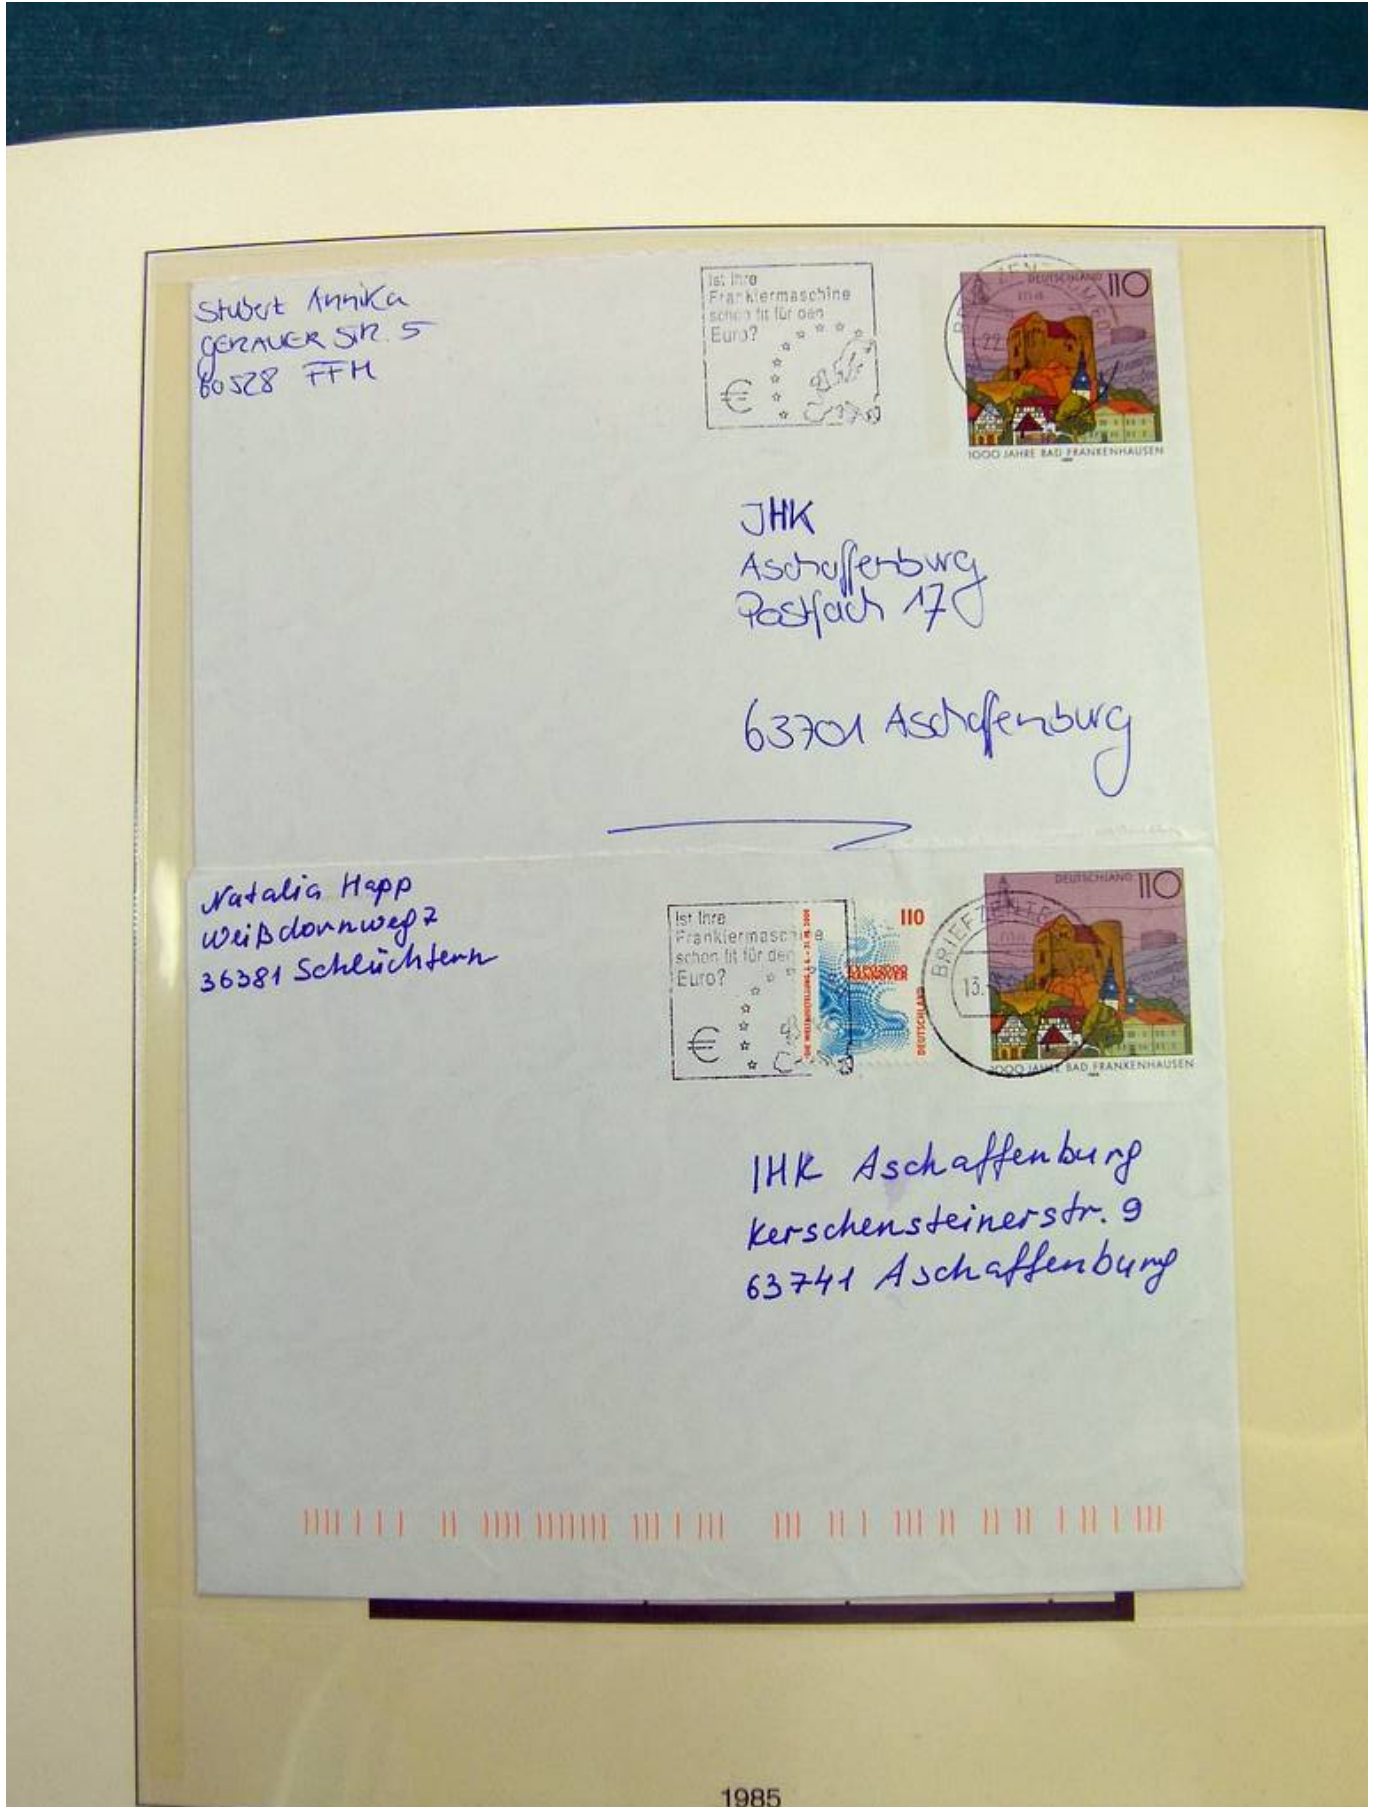 Stubert Annika
GERAUER Str. 5
60528 FFM
Ist Ihre
Frankiermaschine
schon fit für den
Euro?
€
DEUTSCHLAND 110
22
1000 JAHRE BAD FRANKENHAUSEN
JHK
Aschaffenburg
Postfach 17
63701 Aschaffenburg
Natalia Happ
Weißdornweg 7
36381 Schlüchtern
Ist Ihre
Frankiermaschine
schon fit für den
Euro?
€
110
EXPO2000
HANNOVER
DEUTSCHLAND
BRIEFZENTR
13.
DEUTSCHLAND 110
1000 JAHRE BAD FRANKENHAUSEN
IHK Aschaffenburg
Kerschensteinerstr. 9
63741 Aschaffenburg
1985